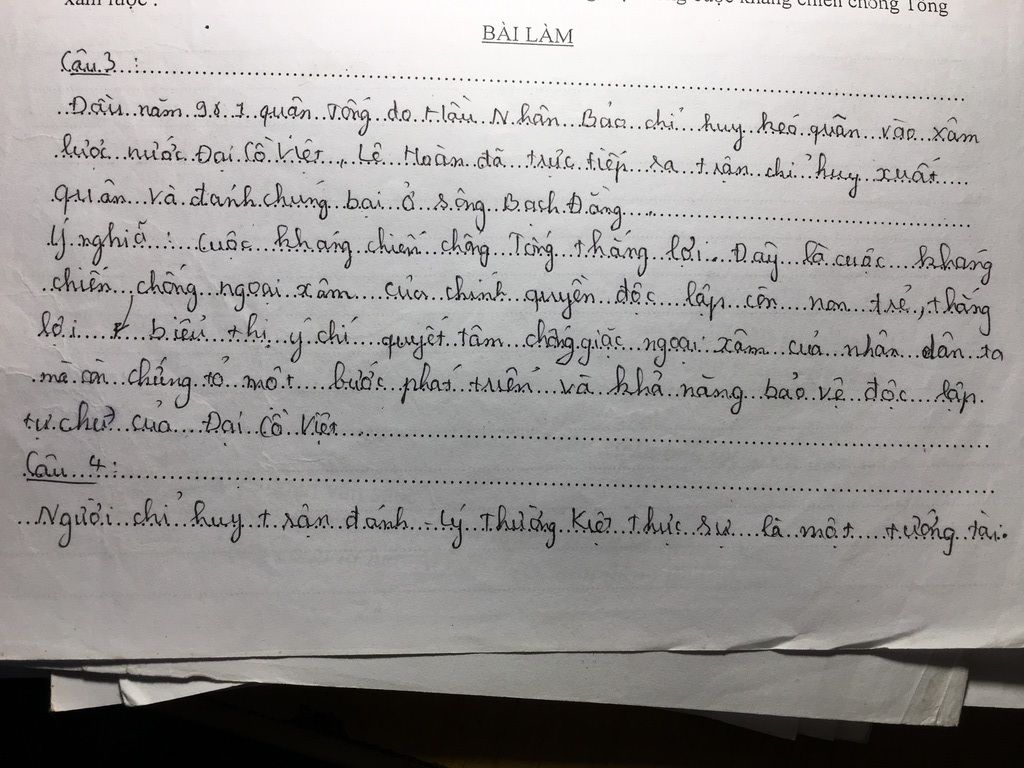 xâm lược . cuộc kháng chiến chống Tống
BÀI LÀM
Câu 3 :
Đầu năm 981 quân Tống do Hầu Nhân Bảo chỉ huy kéo quân vào xâm
lược nước Đại Cồ Việt, Lê Hoàn đã trực tiếp ra trận chỉ huy xuất
quân và đánh chúng bại ở sông Bạch Đằng.
Ý nghĩa : Cuộc kháng chiến chống Tống thắng lợi. Đây là cuộc kháng
chiến chống ngoại xâm của chính quyền độc lập còn non trẻ, thắng
lợi biểu thị ý chí quyết tâm chống giặc ngoại xâm của nhân dân ta
mà còn chứng tỏ một bước phát triển và khả năng bảo vệ độc lập
tự chủ của Đại Cồ Việt
Câu 4 :
Người chỉ huy trận đánh - Lý Thường Kiệt thực sự là một tướng tài.